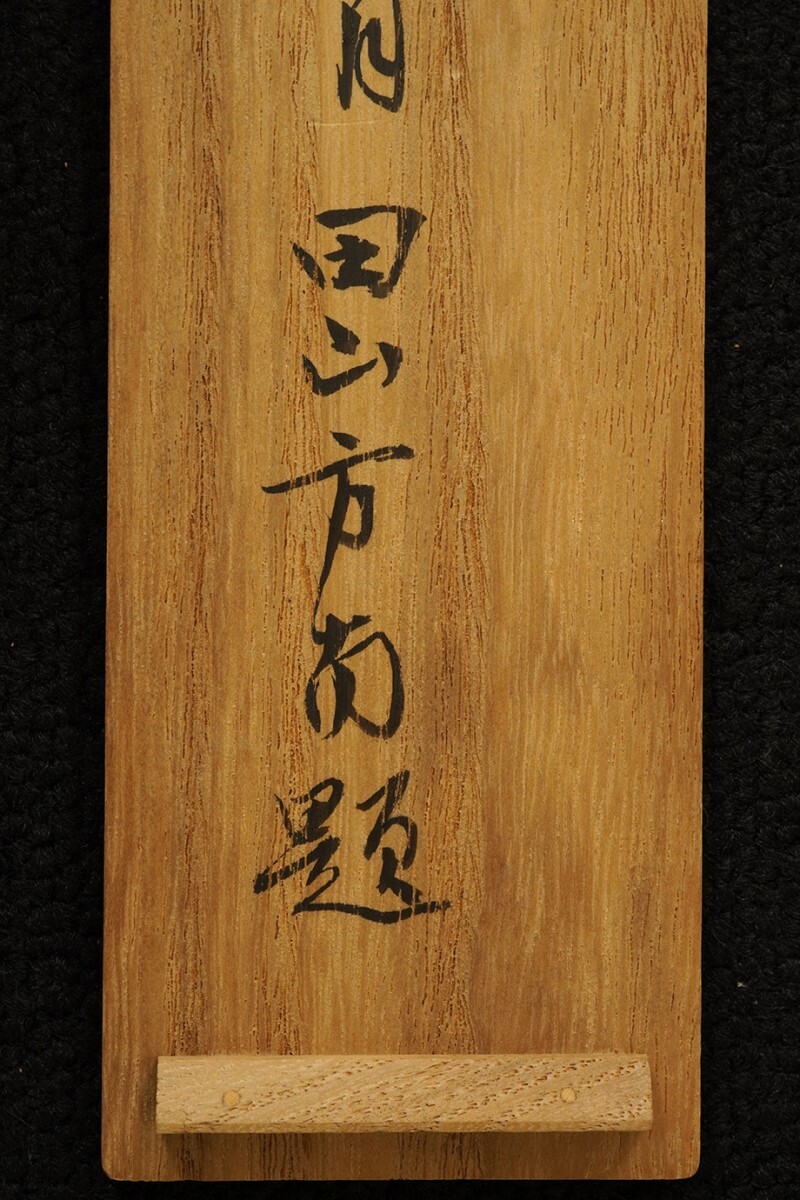 月 田山方南題